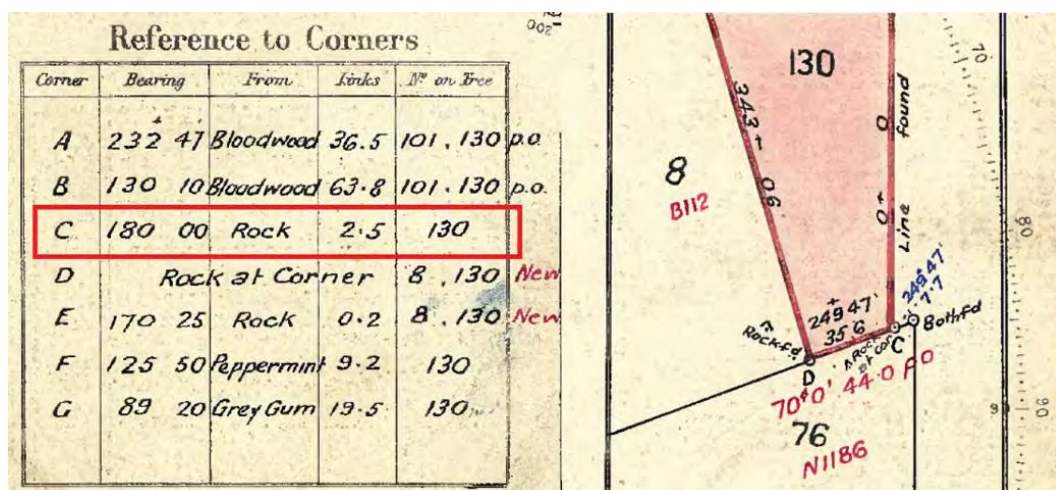 Reference to Corners
Corner Bearing From Links No on Tree
A 232 47 Bloodwood 36.5 101.130 p.o.
B 130 10 Bloodwood 63.8 101.130 p.o.
C 180 00 Rock 2.5 130
D Rock at Corner 8.130 New
E 170 25 Rock 0.2 8.130 New
F 125 50 Peppermint 9.2 130
G 89 20 Grey Gum 19.5 130
200
130
343 06
8
B112
0 0
Line found
70
80
90
249 47'
7.7
249 47'
35 6
Rock fd.
Rock at cor
C
Both fd
D
70°0' 44.0 po
76
N1186